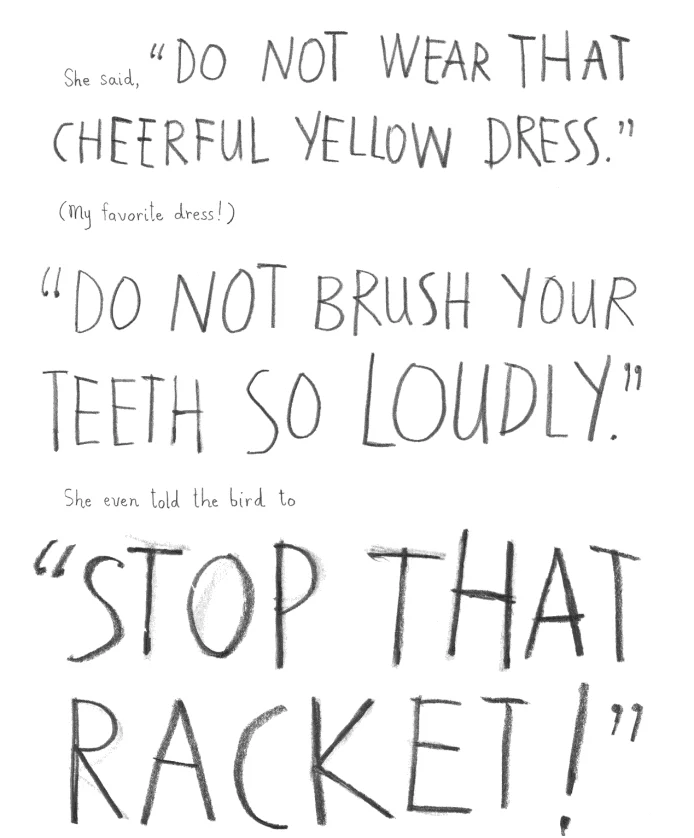 She said, “DO NOT WEAR THAT
CHEERFUL YELLOW DRESS.”
(My favorite dress!)
“DO NOT BRUSH YOUR
TEETH SO LOUDLY.”
She even told the bird to
“STOP THAT
RACKET!”